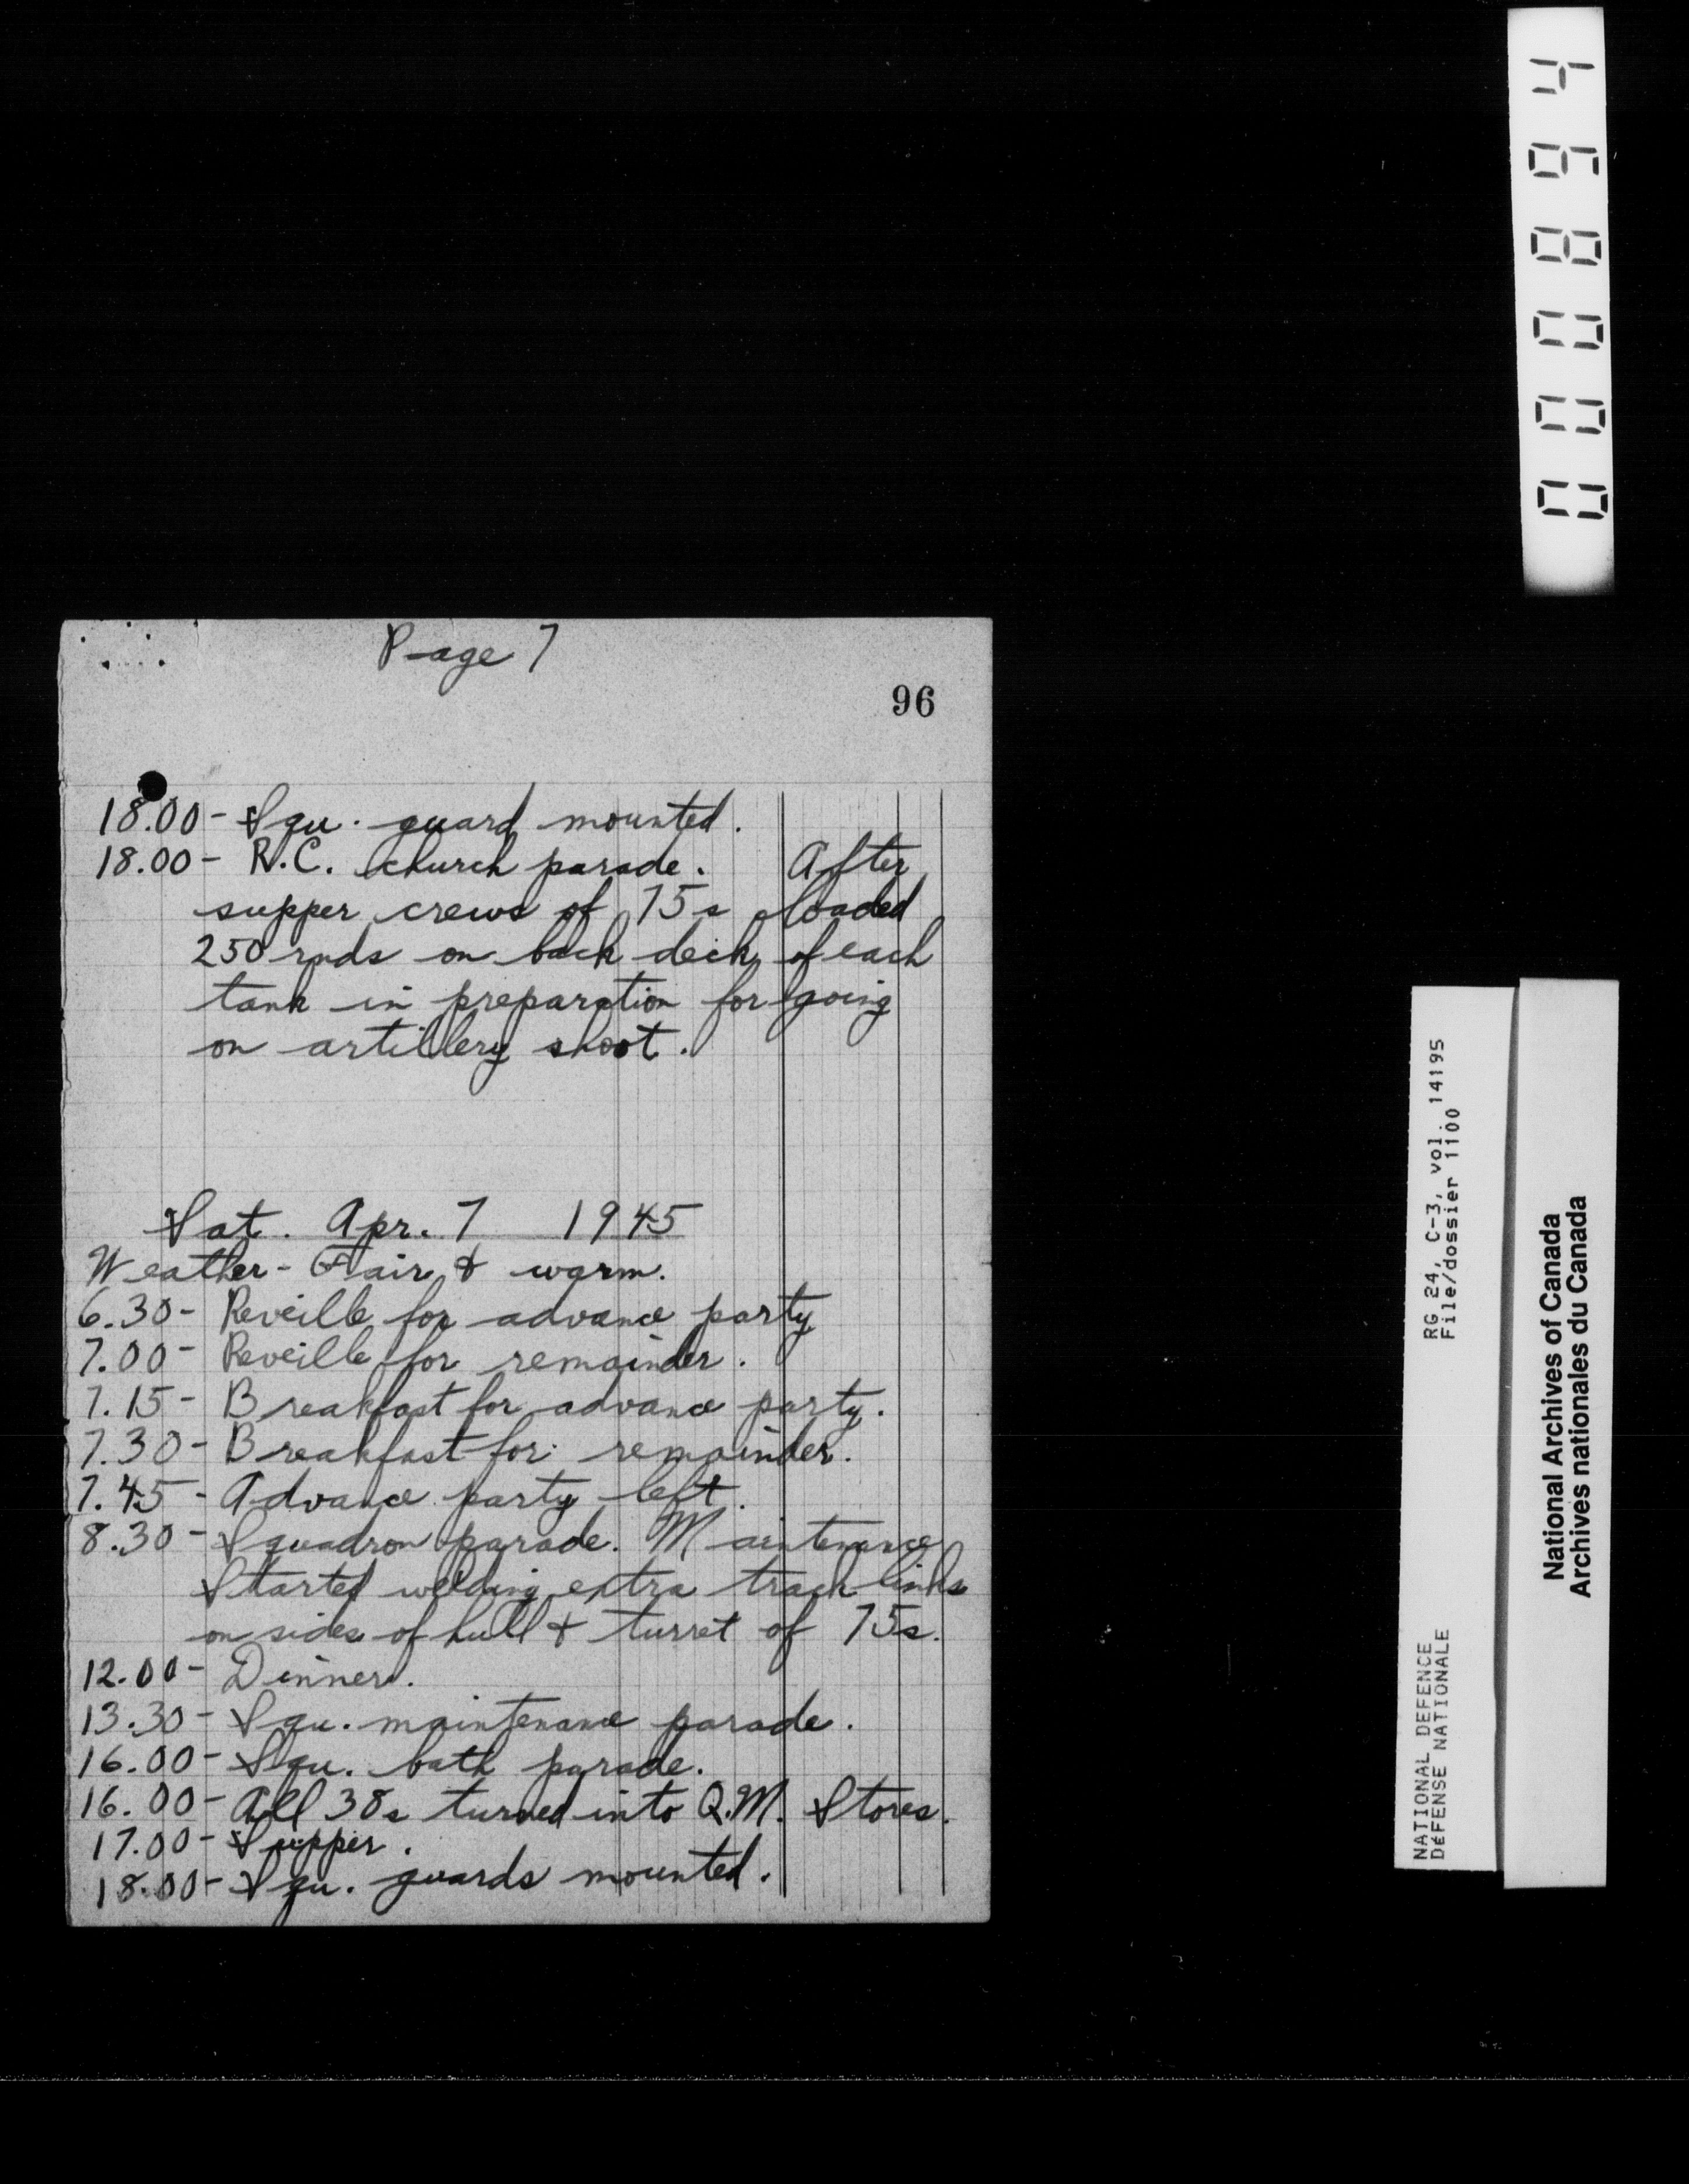 Page 7
96
18.00 - Squ. guard mounted.
18.00 - R.C. church parade. After
supper crews of 75s loaded
250 rnds on back deck of each
tank in preparation for going
on artillery shoot.
Sat. Apr. 7 1945
Weather - Fair & warm.
6.30 - Reveille for advance party
7.00 - Reveille for remainder.
7.15 - Breakfast for advance party.
7.30 - Breakfast for remainder.
7.45 - Advance party left.
8.30 - Squadron parade. Maintenance
Started welding extra track links
on sides of hull & turret of 75s.
12.00 - Dinner.
13.30 - Squ. maintenance parade.
16.00 - Squ. bath parade.
16.00 - All 38s turned into Q.M. Stores.
17.00 - Supper.
18.00 - Squ. guards mounted.
0000894
RG 24, C-3, vol. 14195
File/dossier 1100
NATIONAL DEFENCE
DéFENSE NATIONALE
National Archives of Canada
Archives nationales du Canada